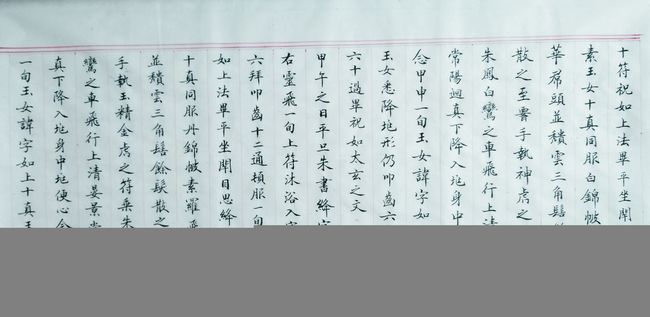 十符祝如上法畢平坐閉
素玉女十真同服白錦帔
華帬頭並積雲三角髻
散之至霄手執神虎之
朱鳳白鸞之車飛行上清
常陽迴真下降入兆身中
念甲申一旬玉女諱字如
玉女悉降兆形仍叩齒六
六十過畢祝如太玄之文
甲午之日平旦朱書絳宮
右靈飛一旬上符沐浴入室
六拜叩齒十二通頓服一旬
如上法畢平坐閉目思絳
十真同服丹錦帔素羅
並積雲三角髻餘髮散之
手執玉精金虎之符乘朱
鸞之車飛行上清晏景常
真下降入兆身中兆便心念
一旬玉女諱字如上十真玉